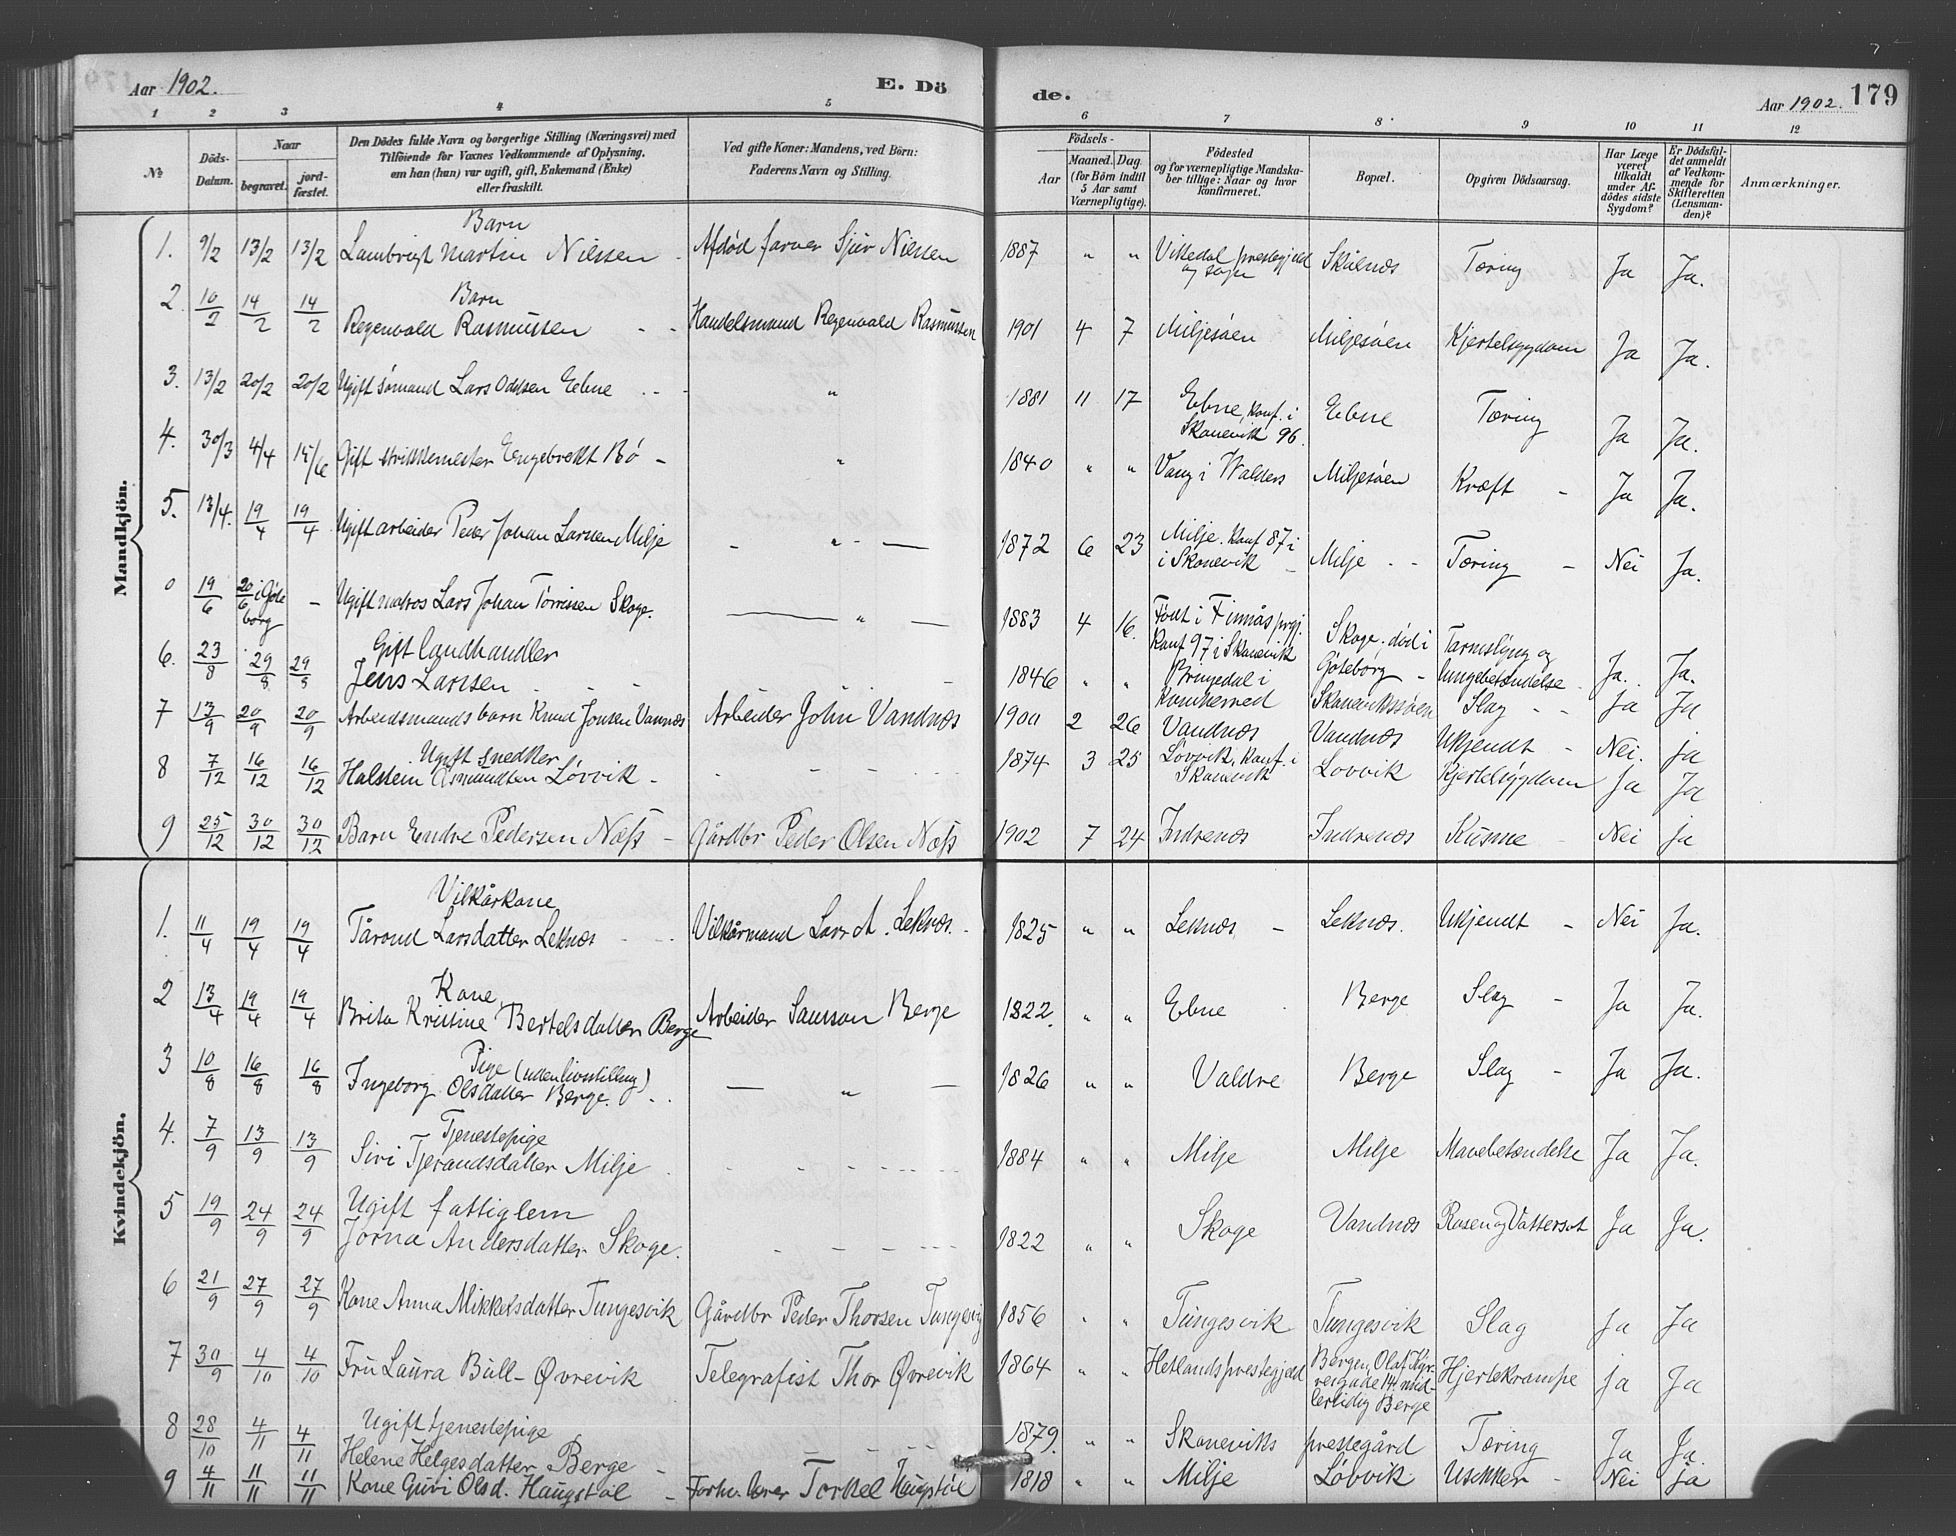 Aar 1902.
E. Dö
de.
Aar 1902.
179
1 2 3 4 5 6 7 8 9 10 11 12
№
Döds-Datum.
Naar
begravet.
jordfæstet.
Den Dödes fulde Navn og borgerlige Stilling (Næringsvei) med
Tilföiende for Voxnes Vedkommende af Oplysning,
om han (hun) var ugift, gift, Enkemand (Enke)
eller fraskilt.
Ved gifte Koner: Mandens, ved Börn:
Faderens Navn og Stilling.
Födsels-
Aar
Maaned. Dag
(for Börn indtil
5 Aar samt
Værnepligtige).
Födested
og for værnepligtige Mandskaber tillige: Naar og hvor
konfirmeret.
Bopæl.
Opgiven Dödsaarsag.
Har Læge været tilkaldt under Afdödes sidste Sygdom?
Er Dödsfaldet anmeldt af Vedkommende for Skifteretten (Lensmanden)?
Anmærkninger.
Mandkjön.
1. 9/2 13/2 13/2 Barn Lambrigt Martin Nielsen - Afdød farver Sjur Nielsen 1887 " " Vikedal prestegjeld og sogn Skålnæs Tæring Ja Ja.
2. 10/2 14/2 14/2 Barn Regenvald Rasmussen - - Handelsmand Regenvald Rasmussen 1901 4 7 Miljesøen Miljesøen Kjertelsygdom Ja Ja.
3. 13/2 20/2 20/2 Ugift sømand Lars Oddsen Ebne " 1881 11 17 Ebne, Konf. i Skonevik 96. Ebne Tæring Ja Ja.
4. 30/3 4/4 15/6 Gift strikkemester Engebrekt Bö - " 1840 " " Vang i Walders Miljesøen Kræft - Ja Ja.
5. 13/4. 19/4 19/4 Ugift arbeider Peder Johan Larsen Milje - " - 1872 6 23 Milje. Konf 87 i i Skonevik Milje - - Tæring - Nei Ja.
0 19/6 20/6 i Göteborg - Ugift matros Lars Johan Tørrissen Skoge. " 1883 4 16. Født i Finnås prgj. Konf 97 i Skonevik Skoge, død i Göteborg - Tarmslyng og lungebetændelse Ja. Ja.
6. 23/8 29/8 29/8 Gift landhandler Jens Larsen - - - 1846 " " i Skonevikssøen Slag - - Ja Ja
7 13/9 20/9 20/9 Arbeidsmands barn Knud Jonsen Vannæs Arbeider John Vandnæs 1900 2 26 Vandnæs Vandnæs Ukjendt - Nei. ja
8 7/12 16/12 16/12 Ugift snedker Halstein Asmundsen Løvvik - 1874 3 25 Løvvik, Konf. i Skonevik Løvvik Kjertelsygdom Ja Ja
9 25/12 30/12 30/12 Barn Endre Pedersen Næss - Gårdbr Peder Olsen Næss 1902 7 24 Indrenæs Indrenæs Nei ja
Kvindekjön.
1. 11/4 19/4 19/4 Vilkårkone Tårond Larsdatter Leknæs - Vilkårmand Lars A. Leknæs. - 1825 " " Leknæs - Leknæs. Ukjendt - Nei Ja.
2 13/4 19/4 19/4 Kone Brita Kristine Bertelsdatter Berge Arbeider Samson Berge 1822. " " Ebne Berge Slag - Ja Ja.
3 10/8 16/8 16/8 Pige (uden livsstilling) Ingeborg Olsdatter Berge. - " - 1826 " " Valdre Berge Slag - Ja Ja.
4. 7/9 13/9 13/9 Tjenestepige Siri Tjerandsdatter Milje 1884 " " Milje Milje Mavebetændelse Ja Ja.
5 19/9 24/9 24/9 Ugift fattiglem Jorna Andersdatter Skoge. 1822 " " Skoge Vandnæs Rosen og Vattersot Ja Ja.
6 21/9 27/9 27/9 Kone Anna Mikkelsdatter Tungesvik Gårdbr Peder Thorsen Tungesvig 1856 " " Tungesvik Tungesvik Slag Ja Ja
7 30/9 4/10 4/10 Fru Laura Bull-Øvrevik Telegrafist Thor Øvrevik 1864 " " Hetlands prestegjeld Bergen, Olaf Kyrresgade 14. midlertidig Berge Hjertekrampe ja Ja
8 28/10 4/11 4/11 Ugift tjenestepige Helene Helgesdatter Berge - 1879. " " Skoneviks prestegård Tæring Ja Ja.
9 4/11 11/11 11/11 Kone Guri Olsd. Haugstøl - Torkel Haugstøl 1818 " " Milje Løvvik Nei ja